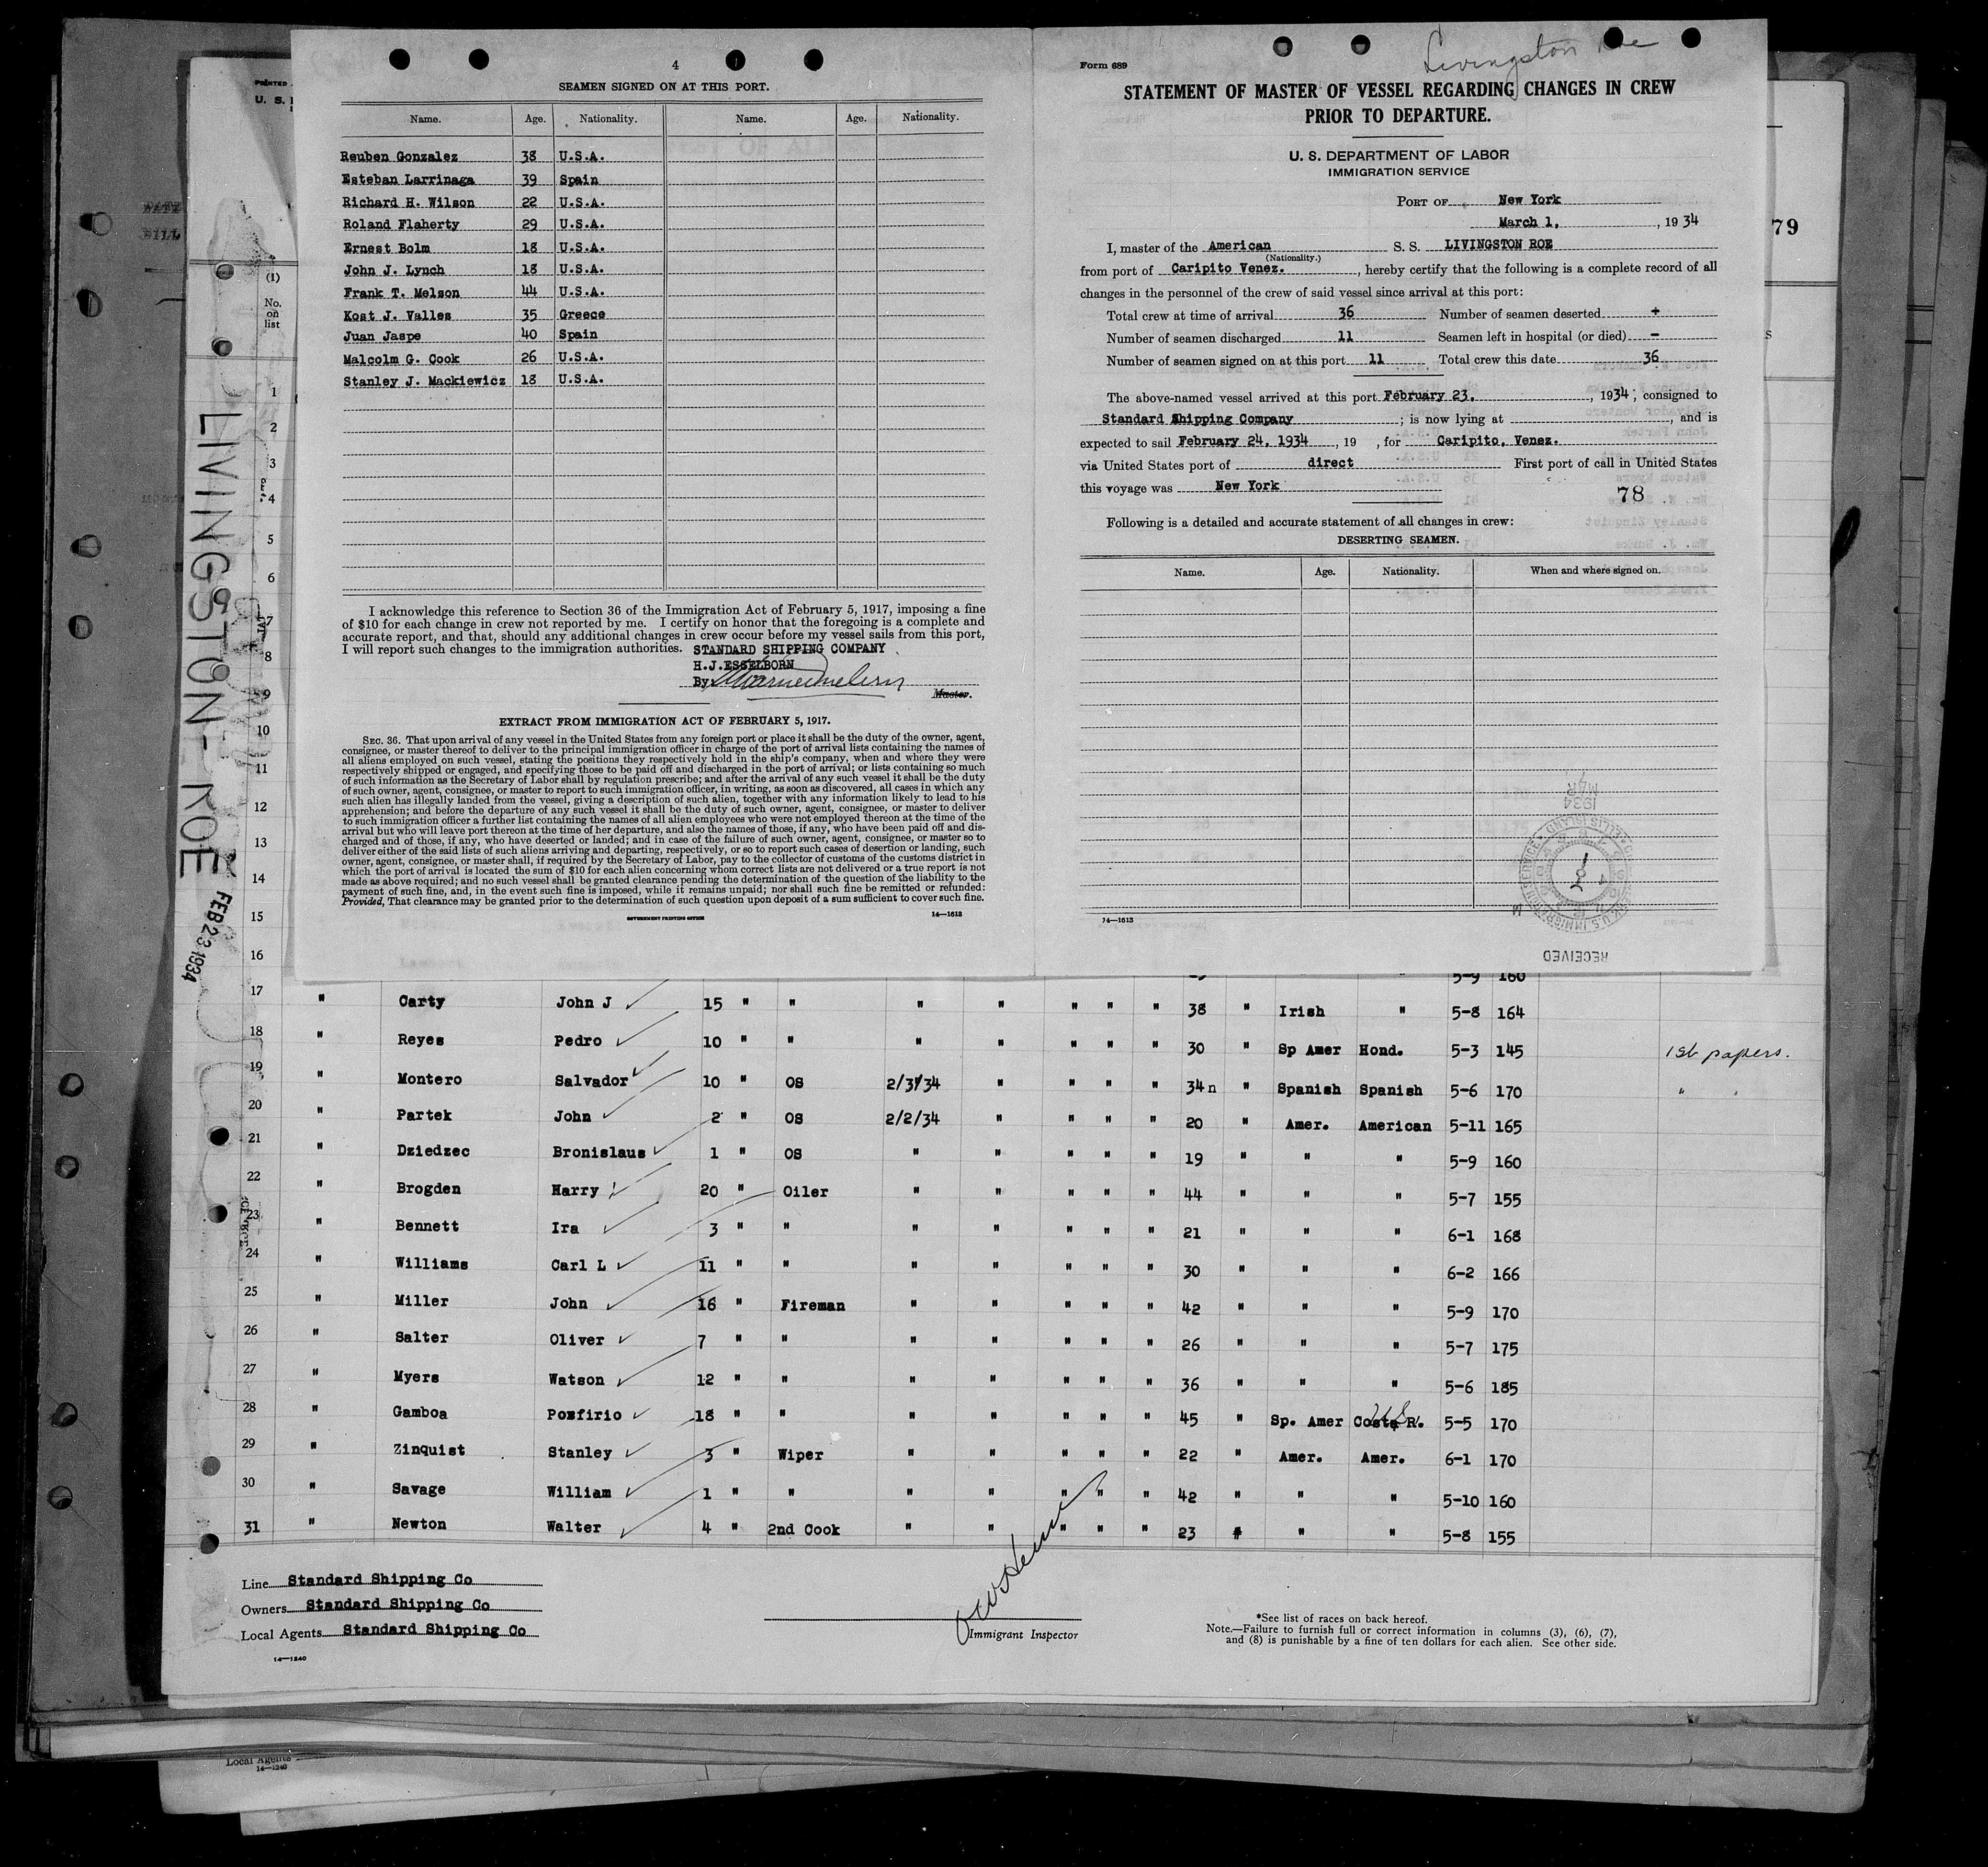 4
SEAMEN SIGNED ON AT THIS PORT.
Name. Age. Nationality. Name. Age. Nationality.
Reuben Gonzalez 38 U.S.A.
Esteban Larrinaga 39 Spain
Richard H. Wilson 22 U.S.A.
Roland Flaherty 29 U.S.A.
Ernest Bolm 18 U.S.A.
John J. Lynch 18 U.S.A.
Frank T. Melson 44 U.S.A.
Kost J. Valles 35 Greece
Juan Jaspe 40 Spain
Malcolm G. Cook 26 U.S.A.
Stanley J. Mackiewicz 18 U.S.A.
I acknowledge this reference to Section 36 of the Immigration Act of February 5, 1917, imposing a fine
of $10 for each change in crew not reported by me. I certify on honor that the foregoing is a complete and
accurate report, and that, should any additional changes in crew occur before my vessel sails from this port,
I will report such changes to the immigration authorities. STANDARD SHIPPING COMPANY
H.J.ESSELBORN
By:
Master.
EXTRACT FROM IMMIGRATION ACT OF FEBRUARY 5, 1917.
SEC. 36. That upon arrival of any vessel in the United States from any foreign port or place it shall be the duty of the owner, agent,
consignee, or master thereof to deliver to the principal immigration officer in charge of the port of arrival lists containing the names of
all aliens employed on such vessel, stating the positions they respectively hold in the ship's company, when and where they were
respectively shipped or engaged, and specifying those to be paid off and discharged in the port of arrival; or lists containing so much
of such information as the Secretary of Labor shall by regulation prescribe; and after the arrival of any such vessel it shall be the duty
of such owner, agent, consignee, or master to report to such immigration officer, in writing, as soon as discovered, all cases in which any
such alien has illegally landed from the vessel, giving a description of such alien, together with any information likely to lead to his
apprehension; and before the departure of any such vessel it shall be the duty of such owner, agent, consignee, or master to deliver
to such immigration officer a further list containing the names of all alien employees who were not employed thereon at the time of the
arrival but who will leave port thereon at the time of her departure, and also the names of those, if any, who have been paid off and dis-
charged and of those, if any, who have deserted or landed; and in case of the failure of such owner, agent, consignee, or master so to
deliver either of the said lists of such aliens arriving and departing, respectively, or so to report such cases of desertion or landing, such
owner, agent, consignee, or master shall, if required by the Secretary of Labor, pay to the collector of customs of the customs district in
which the port of arrival is located the sum of $10 for each alien concerning whom correct lists are not delivered or a true report is not
made as above required; and no such vessel shall be granted clearance pending the determination of the question of the liability to the
payment of such fine, and, in the event such fine is imposed, while it remains unpaid; nor shall such fine be remitted or refunded:
Provided, That clearance may be granted prior to the determination of such question upon deposit of a sum sufficient to cover such fine.
GOVERNMENT PRINTING OFFICE 14—1613
Livingston Roe
Form 689
STATEMENT OF MASTER OF VESSEL REGARDING CHANGES IN CREW
PRIOR TO DEPARTURE.
U. S. DEPARTMENT OF LABOR
IMMIGRATION SERVICE
PORT OF New York
March 1, , 1934
I, master of the American S. S. LIVINGSTON ROE
(Nationality.)
from port of Caripito Venez. , hereby certify that the following is a complete record of all
changes in the personnel of the crew of said vessel since arrival at this port:
Total crew at time of arrival 36 Number of seamen deserted +
Number of seamen discharged 11 Seamen left in hospital (or died) -
Number of seamen signed on at this port 11 Total crew this date 36
The above-named vessel arrived at this port February 23, , 1934; consigned to
Standard Shipping Company ; is now lying at , and is
expected to sail February 24, 1934 , 19 , for Caripito, Venez.
via United States port of direct First port of call in United States
this voyage was New York
78
Following is a detailed and accurate statement of all changes in crew:
DESERTING SEAMEN.
Name. Age. Nationality. When and where signed on.
1934
MAR
RECEIVED
14—1613
79
PRINTED
U. S.
(1)
No.
on
list
1
2
3
4
5
6
7
8
9
10
11
12
13
14
15
16
LIVINGSTON-ROE
FEB 23 1934
5-9 160
17 " Carty John J 15 " " " " " " " 38 " Irish " 5-8 164
18 " Reyes Pedro 10 " " " " " " " 30 " Sp Amer Hond. 5-3 145 1st papers.
19 " Montero Salvador 10 " OS 2/3/34 " " " " 34n " Spanish Spanish 5-6 170 "
20 " Partek John 2 " OS 2/2/34 " " " " 20 " Amer. American 5-11 165
21 " Dziedzec Bronislaus 1 " OS " " " " " 19 " " " 5-9 160
22 " Brogden Harry 20 " Oiler " " " " " 44 " " " 5-7 155
23 " Bennett Ira 3 " " " " " " " 21 " " " 6-1 168
24 " Williams Carl L 11 " " " " " " " 30 " " " 6-2 166
25 " Miller John 16 " Fireman " " " " " 42 " " " 5-9 170
26 " Salter Oliver 7 " " " " " " " 26 " " " 5-7 175
27 " Myers Watson 12 " " " " " " " 36 " " " 5-6 185
28 " Gamboa Pomfirio 18 " " " " " " " 45 " Sp. Amer Costa R. 5-5 170
29 " Zinquist Stanley 3 " Wiper " " " " " 22 " Amer. Amer. 6-1 170
30 " Savage William 1 " " " " " " " 42 " " " 5-10 160
31 " Newton Walter 4 " 2nd Cook " " " " " 23 " " " 5-8 155
Line Standard Shipping Co
Owners Standard Shipping Co
Local Agents Standard Shipping Co
14—1240
Immigrant Inspector
*See list of races on back hereof.
Note.—Failure to furnish full or correct information in columns (3), (6), (7),
and (8) is punishable by a fine of ten dollars for each alien. See other side.
Local Agents
14—1240